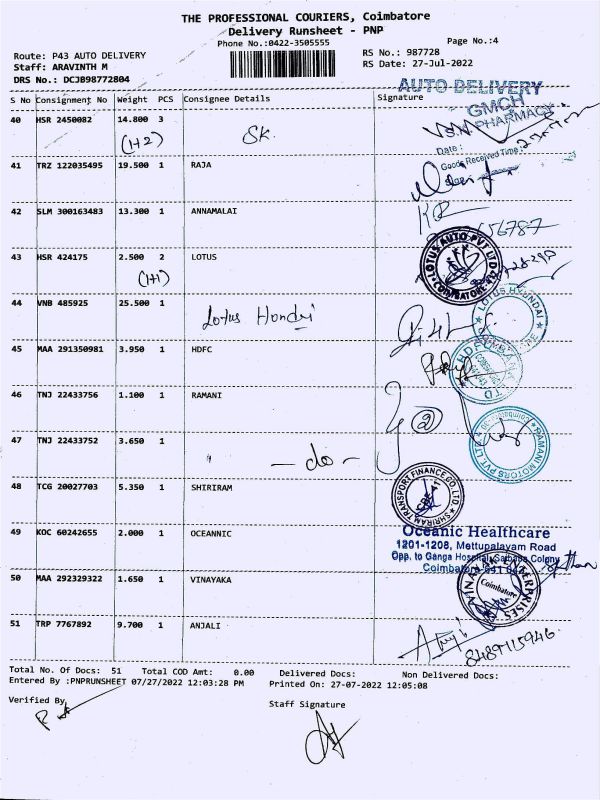 THE PROFESSIONAL COURIERS, Coimbatore
Delivery Runsheet - PNP
Phone No.:0422-3505555
Page No.:4
Route: P43 AUTO DELIVERY
RS No.: 987728
Staff: ARAVINTH M
RS Date: 27-Jul-2022
DRS No.: DCJB98772804
AUTO DELIVERY
S No Consignment No Weight PCS Consignee Details Signature
GMCH
PHARMACY
40 HSR 2450082 14.800 3
(1+2) SK.
Date :
Goods Received Time :
41 TRZ 122035495 19.500 1 RAJA
42 SLM 300163483 13.300 1 ANNAMALAI
43 HSR 424175 2.500 2 LOTUS
(1+1)
LOTUS AUTO PVT LTD
COIMBATORE
44 VNB 485925 25.500 1 Lotus
LOTUS HYUNDAI
45 MAA 291350981 3.950 1 HDFC
46 TNJ 22433756 1.100 1 RAMANI
RAMANI MOTORS PVT. LTD
47 TNJ 22433752 3.650 1 " — do —
48 TCG 20027703 5.350 1 SHRIRAM
SHRIRAM TRANSPORT FINANCE CO. LTD
49 KOC 60242655 2.000 1 OCEANNIC
Oceanic Healthcare
1201-1208, Mettupalayam Road
Opp. to Ganga Hospital, Saibaba Colony
50 MAA 292329322 1.650 1 VINAYAKA
ENTERPRISES
Coimbatore
51 TRP 7767892 9.700 1 ANJALI
8489115946
Total No. Of Docs: 51 Total COD Amt: 0.00 Delivered Docs: Non Delivered Docs:
Entered By :PNPRUNSHEET 07/27/2022 12:03:28 PM Printed On: 27-07-2022 12:05:08
Verified By
Staff Signature